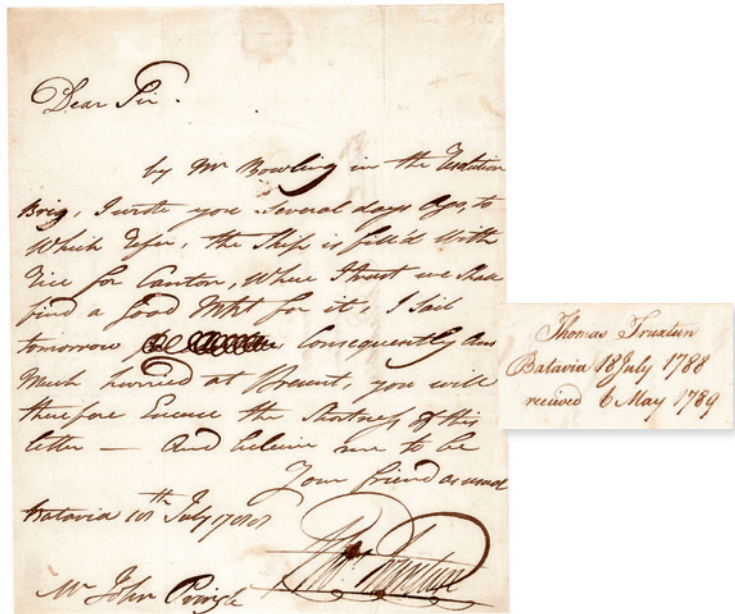 Dear Sir.
by Mr Bowling in the
Brig, I wrote you several days ago, to
Which refer, the Ship is fill'd with
rice for Canton, Where I trust we shall
find a good Mkt for it, I sail
tomorrow Consequently am
Much hurried at Present, you will
therefore Excuse the Shortness of this
letter — And believe me to be
Your friend as usual
Batavia 18th July 1788
Thos. Truxtun
Mr John Pringle
Thomas Truxtun
Batavia 18 July 1788
received 6 May 1789